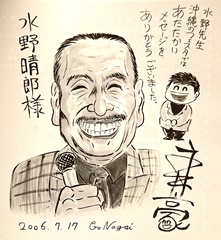 水野晴郎様
水野先生
沖縄のフェスタでは
あたたかい
メッセージを
ありがとう
ございました。
永井豪
2006.7.17 Go Nagai